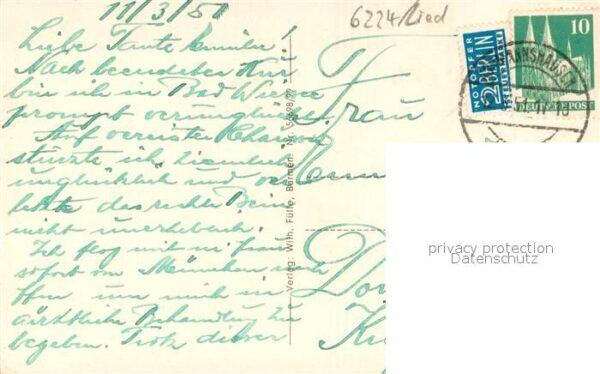 11/3/51
Liebe Tante Emilie!
Nach beendeter Kur
bin ich in Bad Wiessee
prompt verunglückt.
Auf vereister Chaussee
stürzte ich ziemlich
unglücklich und ver-
letzte das rechte Bein
nicht unerheblich.
Ich flog mit m. Frau
sofort von München nach
um mich in
ärztliche Behandlung zu
begeben. Trotz dieser
Verlag: Wilh. Fülle, Barmen. Nr.
6224/Lied
Frau
NOTOPFER
2 BERLIN
STEUERMARKE
10
DEUTSCHE POST
privacy protection
Datenschutz